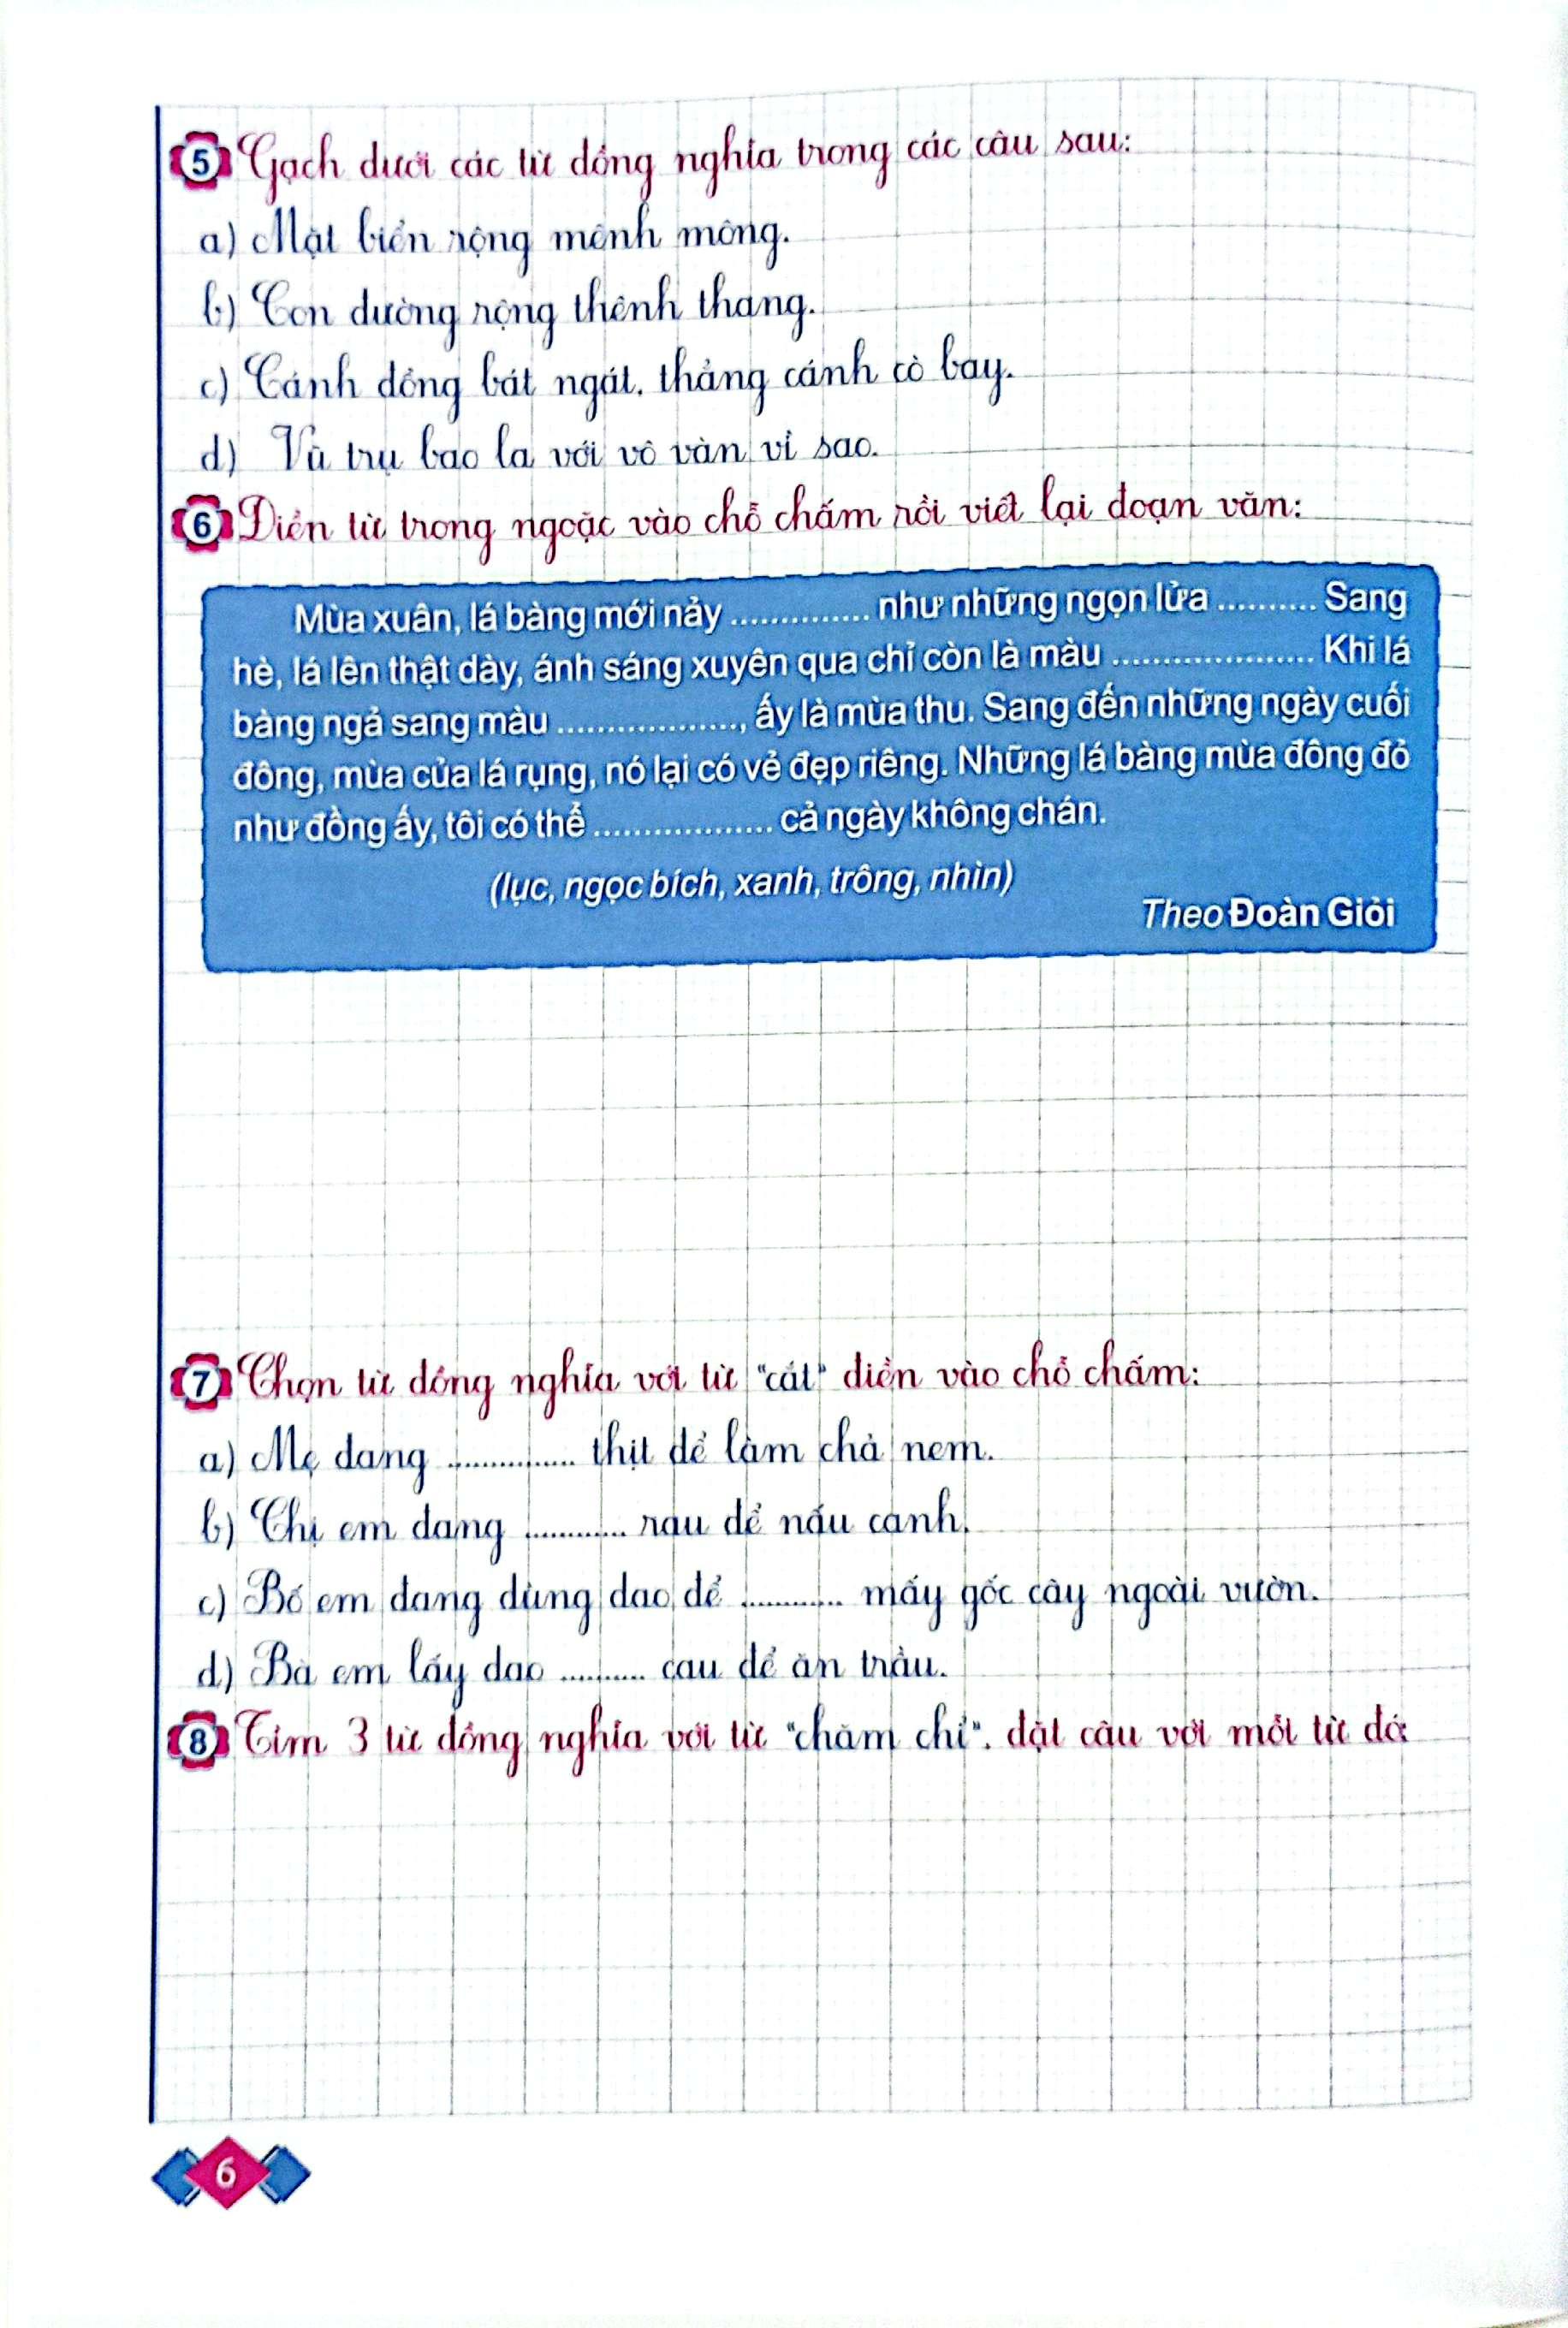 5 Gạch dưới các từ đồng nghĩa trong các câu sau:
a) Mặt biển rộng mênh mông.
b) Con đường rộng thênh thang.
c) Cánh đồng bát ngát, thẳng cánh cò bay.
d) Vũ trụ bao la với vô vàn vì sao.
6 Điền từ trong ngoặc vào chỗ chấm rồi viết lại đoạn văn:
Mùa xuân, lá bàng mới nảy .............. như những ngọn lửa .......... Sang
hè, lá lên thật dày, ánh sáng xuyên qua chỉ còn là màu .................... Khi lá
bàng ngả sang màu .................., ấy là mùa thu. Sang đến những ngày cuối
đông, mùa của lá rụng, nó lại có vẻ đẹp riêng. Những lá bàng mùa đông đỏ
như đồng ấy, tôi có thể .................. cả ngày không chán.
(lục, ngọc bích, xanh, trông, nhìn)
Theo Đoàn Giỏi
7 Chọn từ đồng nghĩa với từ "cắt" điền vào chỗ chấm:
a) Mẹ đang ............. thịt để làm chả nem.
b) Chị em đang ........... rau để nấu canh.
c) Bố em đang dùng dao để ........... mấy gốc cây ngoài vườn.
d) Bà em lấy dao .......... cau để ăn trầu.
8 Tìm 3 từ đồng nghĩa với từ "chăm chỉ", đặt câu với mỗi từ đó
6